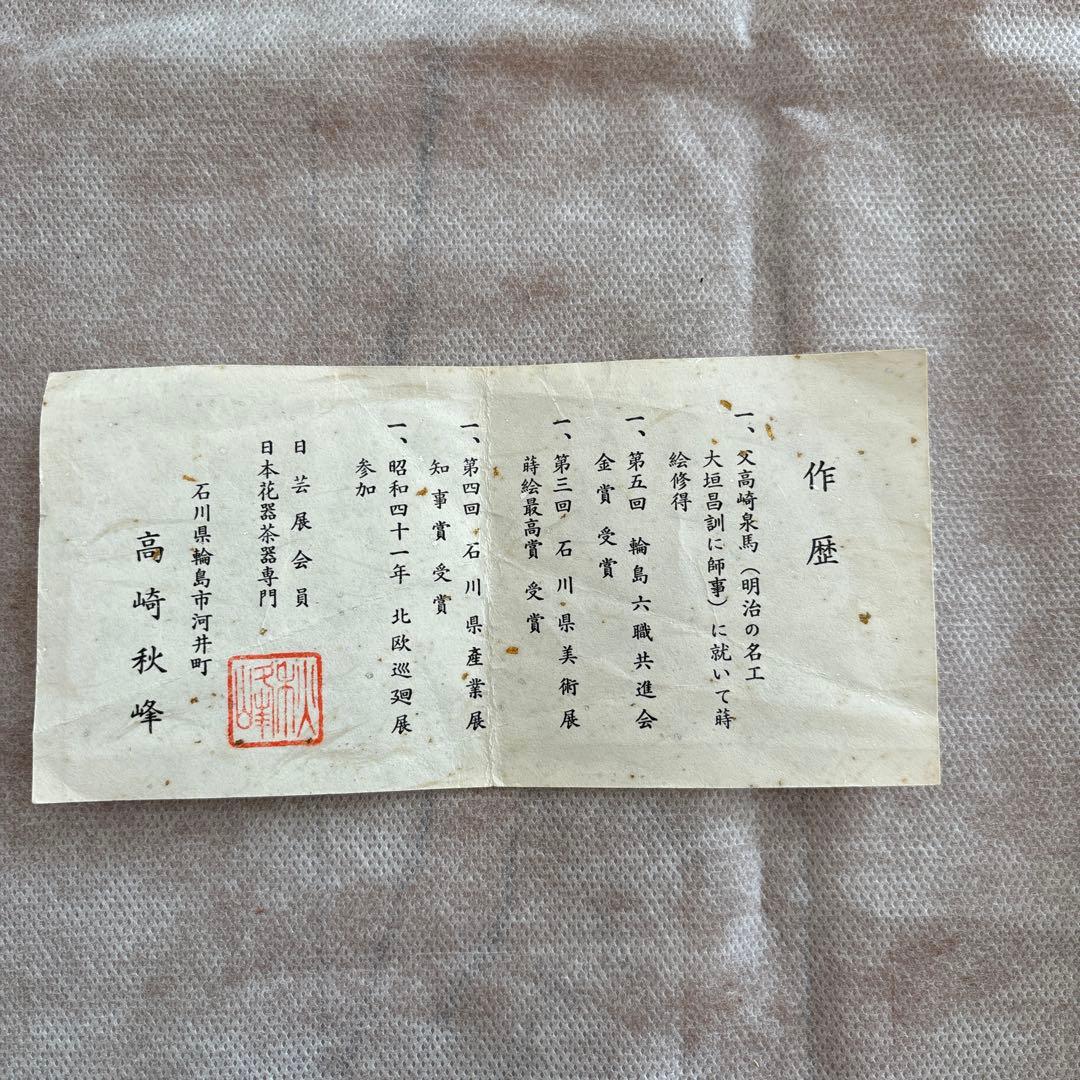 作歴
一、父高崎泉馬（明治の名工
大垣昌訓に師事）に就いて蒔
絵修得
一、第五回 輪島六職共進会
金賞 受賞
一、第三回 石川県美術展
蒔絵最高賞 受賞
一、第四回 石川県産業展
知事賞 受賞
一、昭和四十一年 北欧巡廻展
参加
日芸展会員
日本花器茶器専門
石川県輪島市河井町
高崎秋峰
秋峰